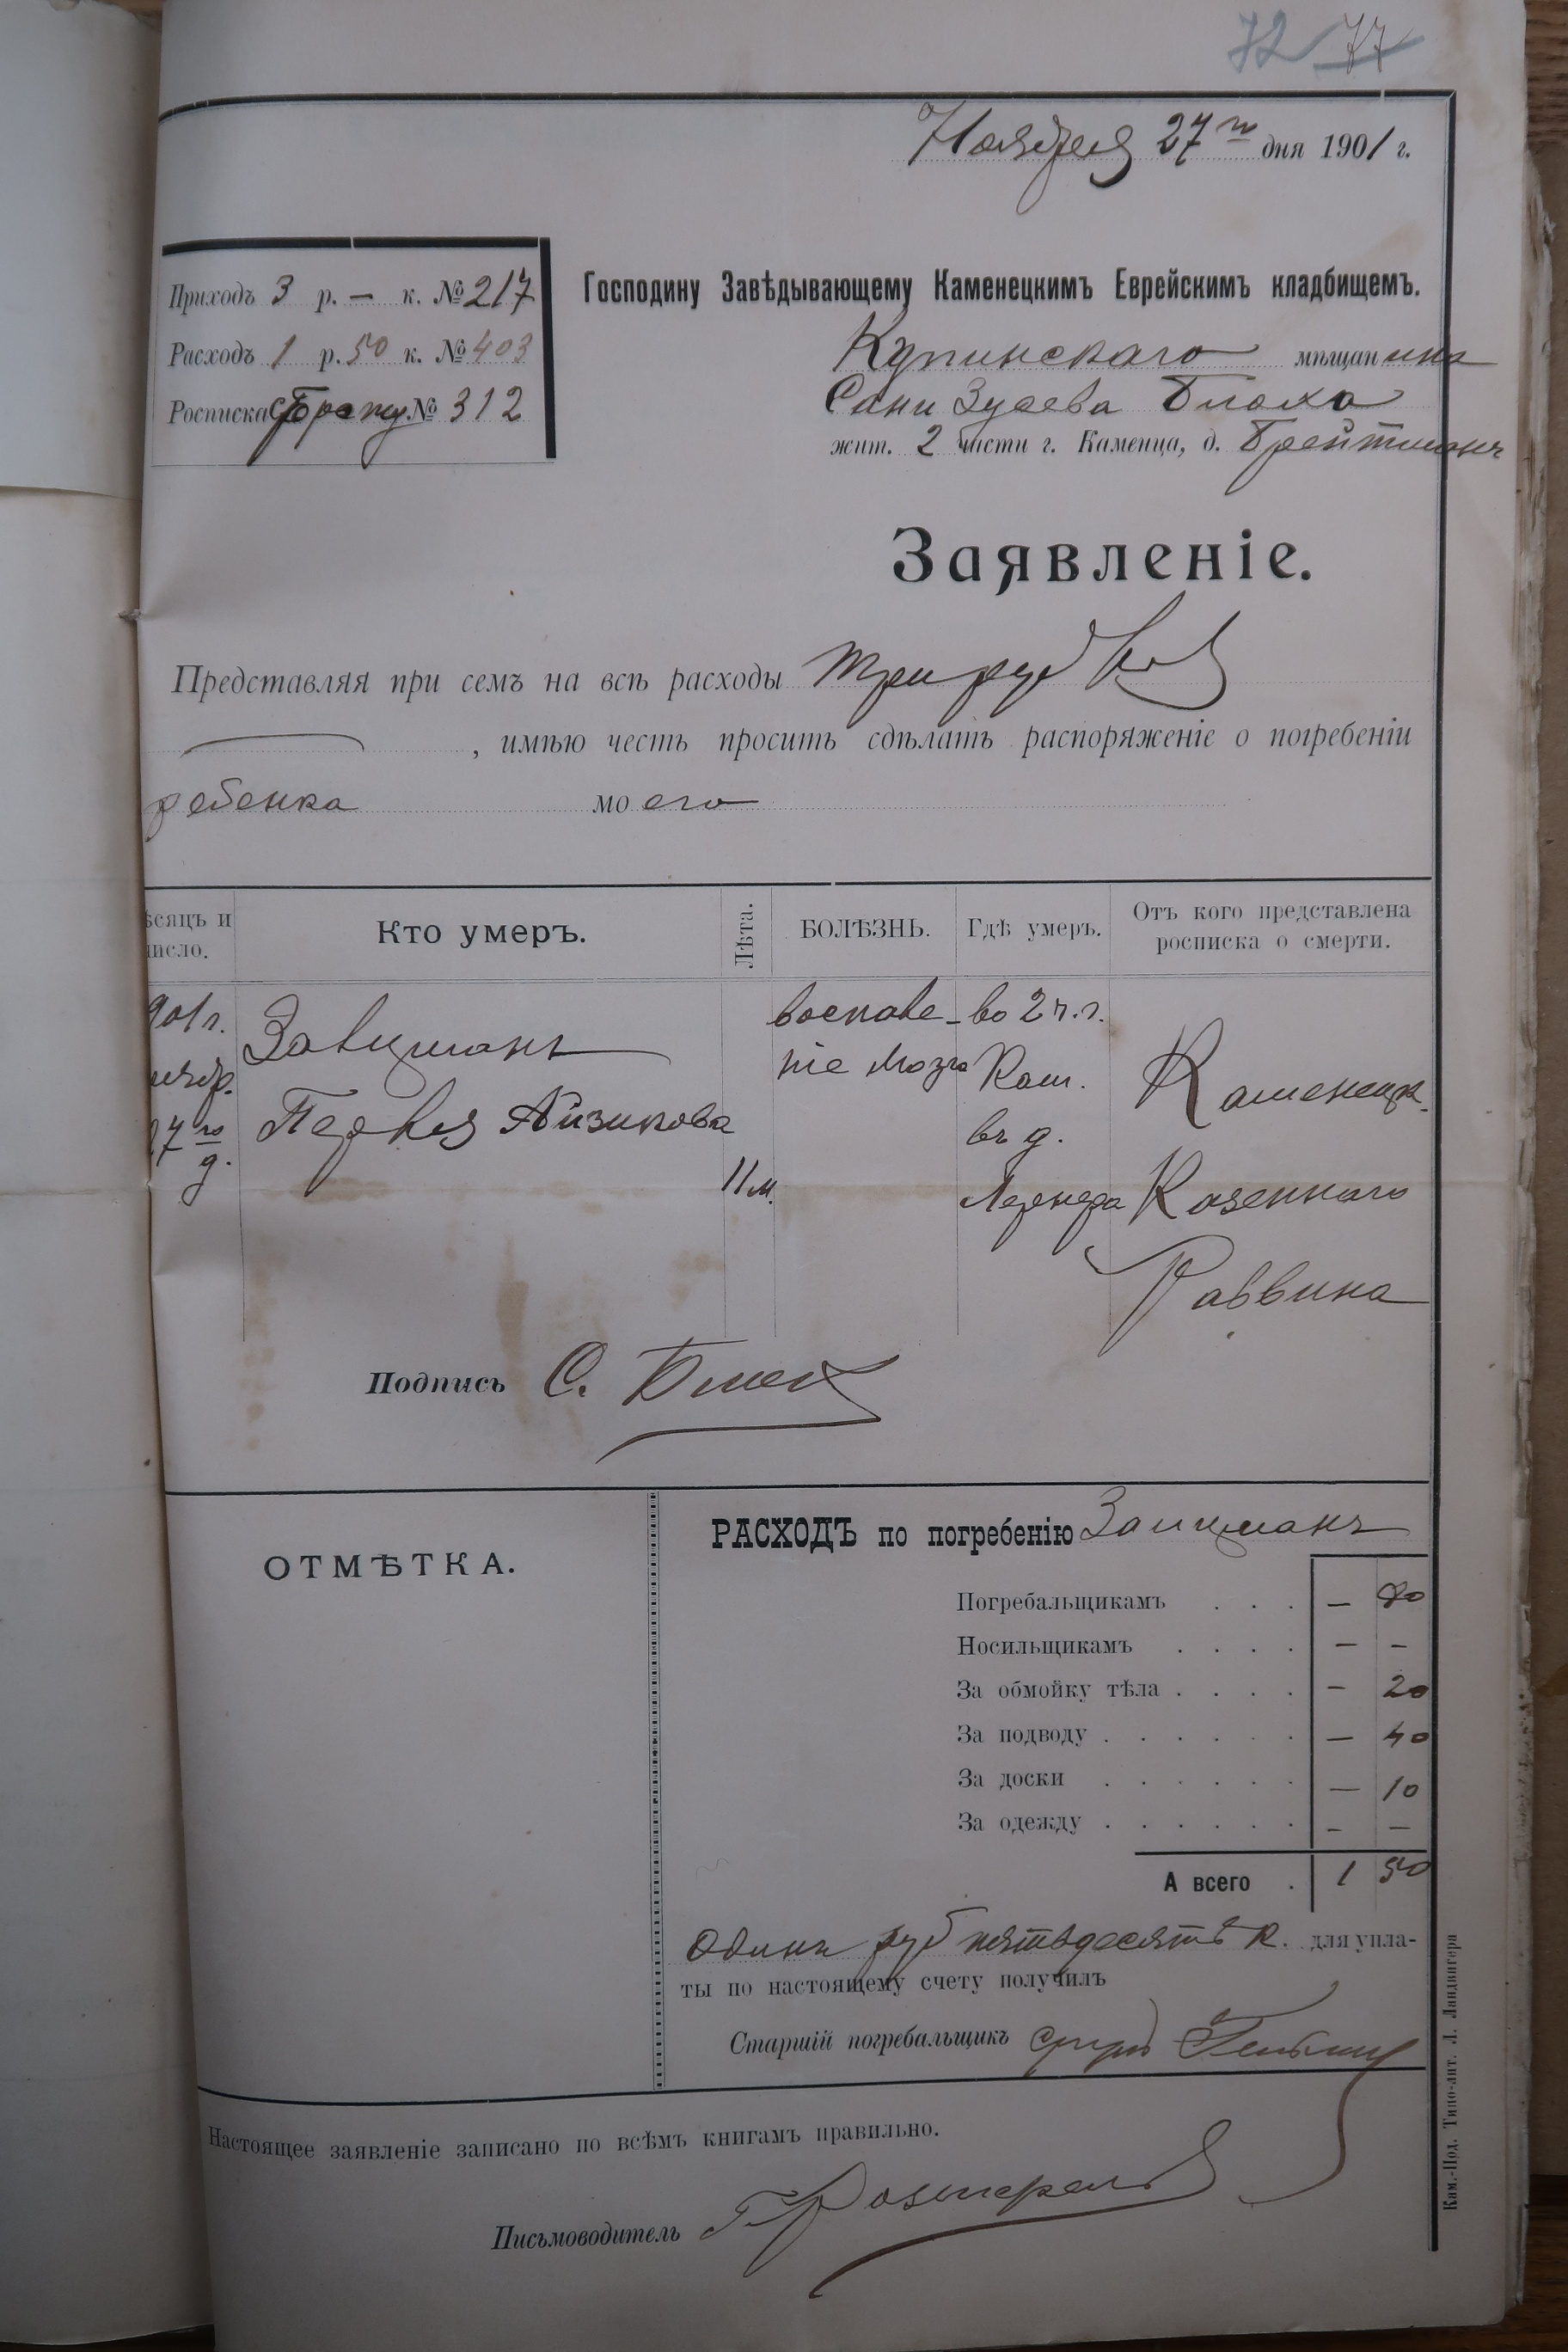 72 77
Ноября 27го дня 1901 г.
Приходъ 3 р. — к. № 217
Расходъ 1 р. 50 к. № 403
Росписка № 312
Господину Завѣдывающему Каменецкимъ Еврейскимъ кладбищемъ.
Купинскаго мѣщанина
Сани Зусева Блоха
жит. 2 части г. Каменца, д. Брейтманъ
Заявленіе.
Представляя при семъ на всѣ расходы три руб
, имѣю честь просить сдѣлать распоряженіе о погребеніи
ребенка моего
ѣсяцъ и
исло.
Кто умеръ.
Лѣта.
БОЛѢЗНЬ.
Гдѣ умеръ.
Отъ кого представлена
росписка о смерти.
901 г.
оябр.
27го
д.
Зайцманъ
Перля Айзикова
11 м.
воспале-
ніе мозга
во 2 ч. г.
Кам.
въ д.
Лернера
Каменецк.
Казеннаго
Раввина
Подпись С. Блох
ОТМѢТКА.
РАСХОДЪ по погребенію Зайцманъ
Погребальщикамъ . . . — 80
Носильщикамъ . . . . — —
За обмойку тѣла . . . . — 20
За подводу . . . . . . — 40
За доски . . . . . . — 10
За одежду . . . . . . — —
А всего . 1 50
Одинъ руб пятьдесятъ к. для упла-
ты по настоящему счету получилъ
Старшій погребальщикъ
Настоящее заявленіе записано по всѣмъ книгамъ правильно.
Письмоводитель
Кам.-Под. Типо-лит. Л. Ландвигера